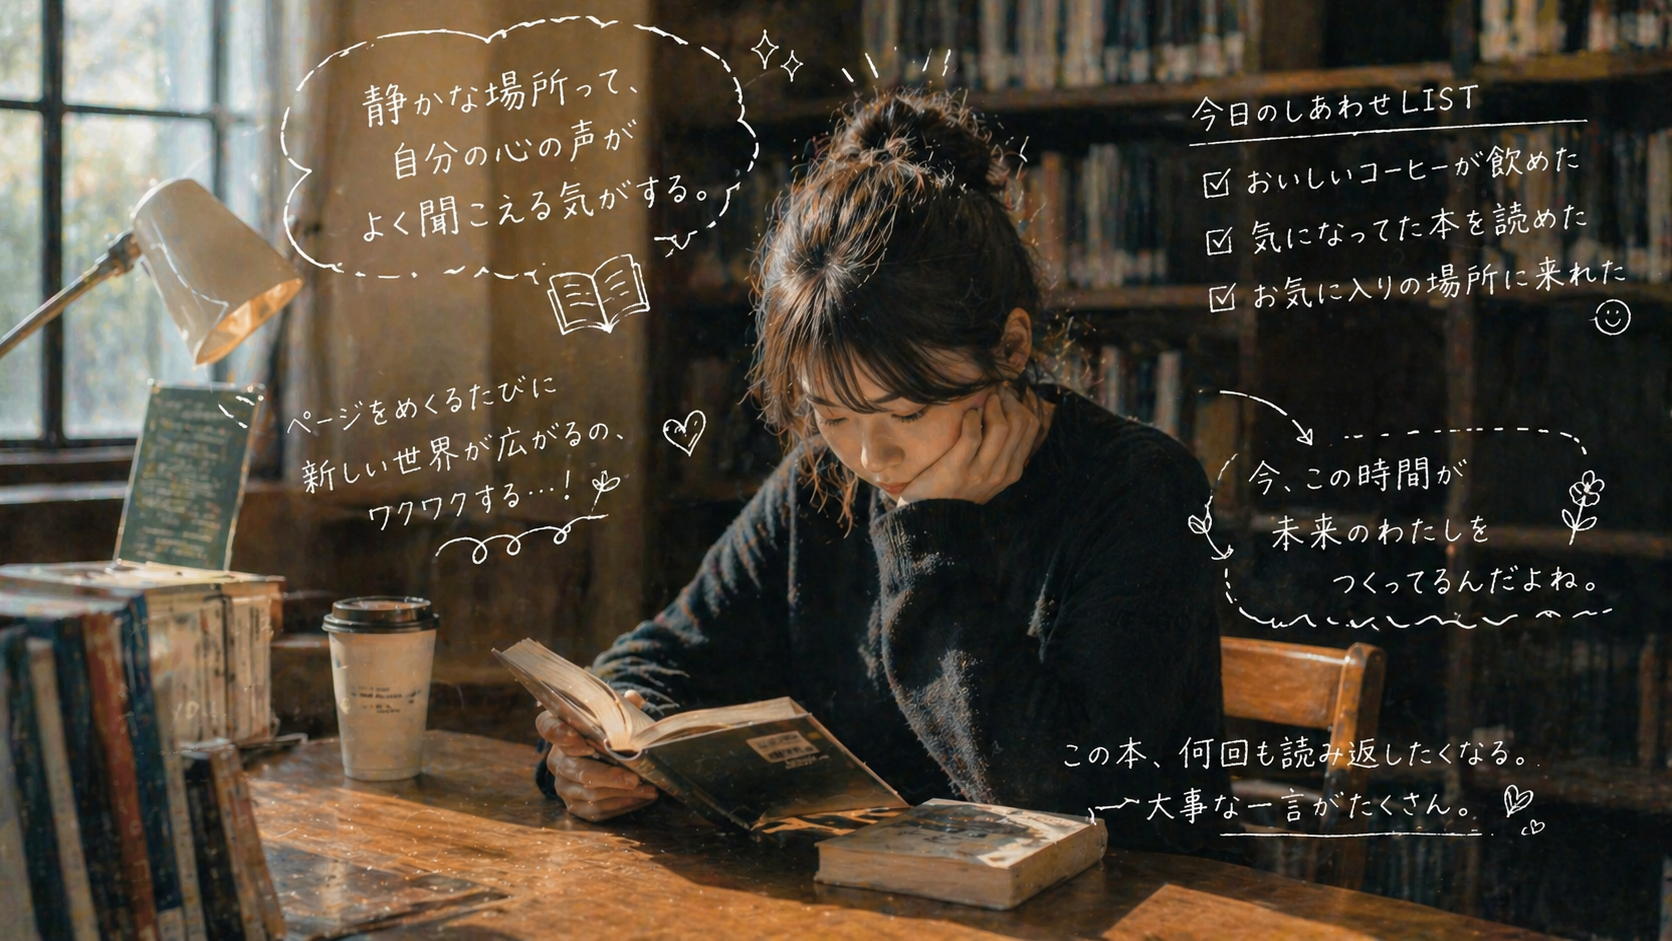 静かな場所って、
自分の心の声が
よく聞こえる気がする。
ページをめくるたびに
新しい世界が広がるの、
ワクワクする…!
今日のしあわせLIST
☑ おいしいコーヒーが飲めた
☑ 気になってた本を読めた
☑ お気に入りの場所に来れた
今、この時間が
未来のわたしを
つくってるんだよね。
この本、何回も読み返したくなる。
大事な一言がたくさん。